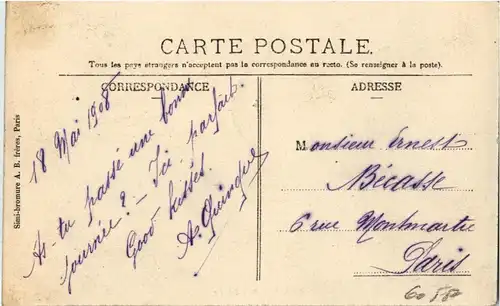 CARTE POSTALE.
Tous les pays étrangers n'acceptent pas la correspondance au recto. (Se renseigner à la poste).
CORRESPONDANCE
18 Mai 1908
As-tu passé une bonne
journée? - Ici, parfait.
Good kisses.
ADRESSE
Monsieur Ernest
Bécasse
6 rue Montmartre
Paris
Simi-bromure A. B. frères, Paris